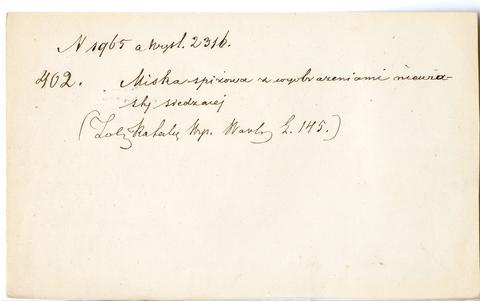 N 1965 a wyst. 2316.
402. Miska spiżowa z wyobrażeniami niewia-
sty siedzącej
(Zob. Katalog Wyst. L. 145.)